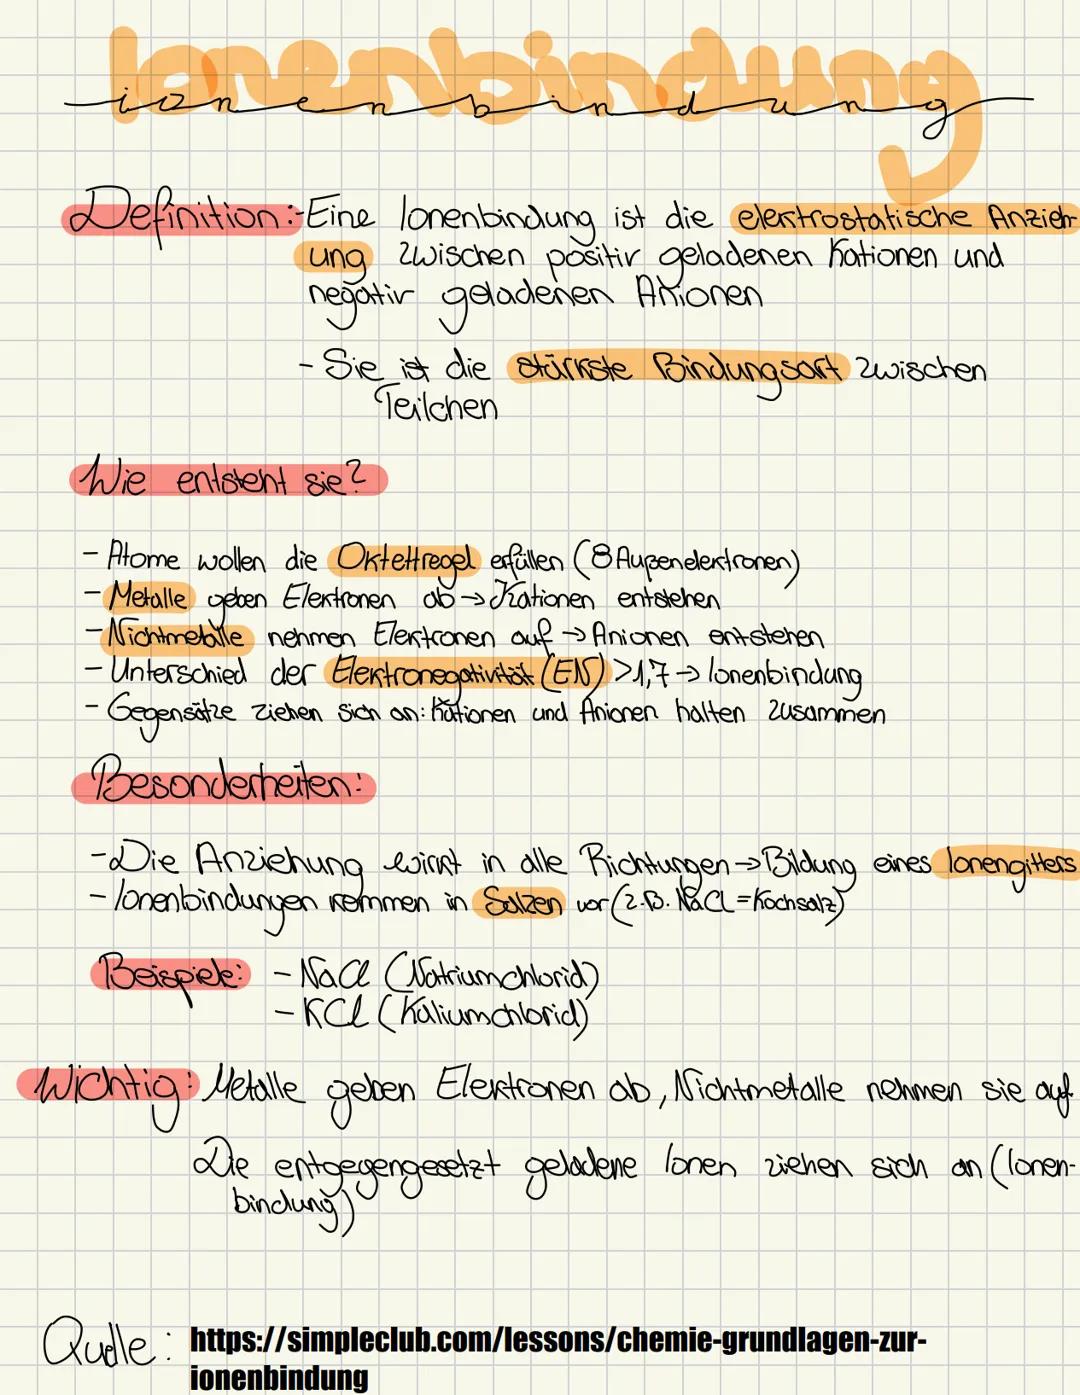 Ionenbindung
ionenbindung
Definition: -Eine Ionenbindung ist die elektrostatische Anzieh
ung zwischen positiv geladenen Kationen und
negativ geladenen Anionen
- Sie ist die stärkste Bindungsart zwischen
Teilchen
Wie entsteht sie?
- Atome wollen die Oktettregel erfüllen (8 Außenelektronen)
- Metalle geben Elektronen ab → Kationen entstehen
- Nichtmetalle nehmen Elektronen auf → Anionen entstehen
- Unterschied der Elektronegativität (EN) >1,7 → Ionenbindung
- Gegensätze ziehen sich an: Kationen und Anionen halten zusammen
Besonderheiten:
- Die Anziehung wirkt in alle Richtungen → Bildung eines Ionengitters
- Ionenbindungen kommen in Salzen vor (z.B. NaCl = Kochsalz)
Beispiele: - NaCl (Natriumchlorid)
- KCl (Kaliumchlorid)
Wichtig: Metalle geben Elektronen ab, Nichtmetalle nehmen sie auf
Die entgegengesetzt geladene Ionen ziehen sich an (Ionen-
bindung)
Quelle: https://simpleclub.com/lessons/chemie-grundlagen-zur-
ionenbindung